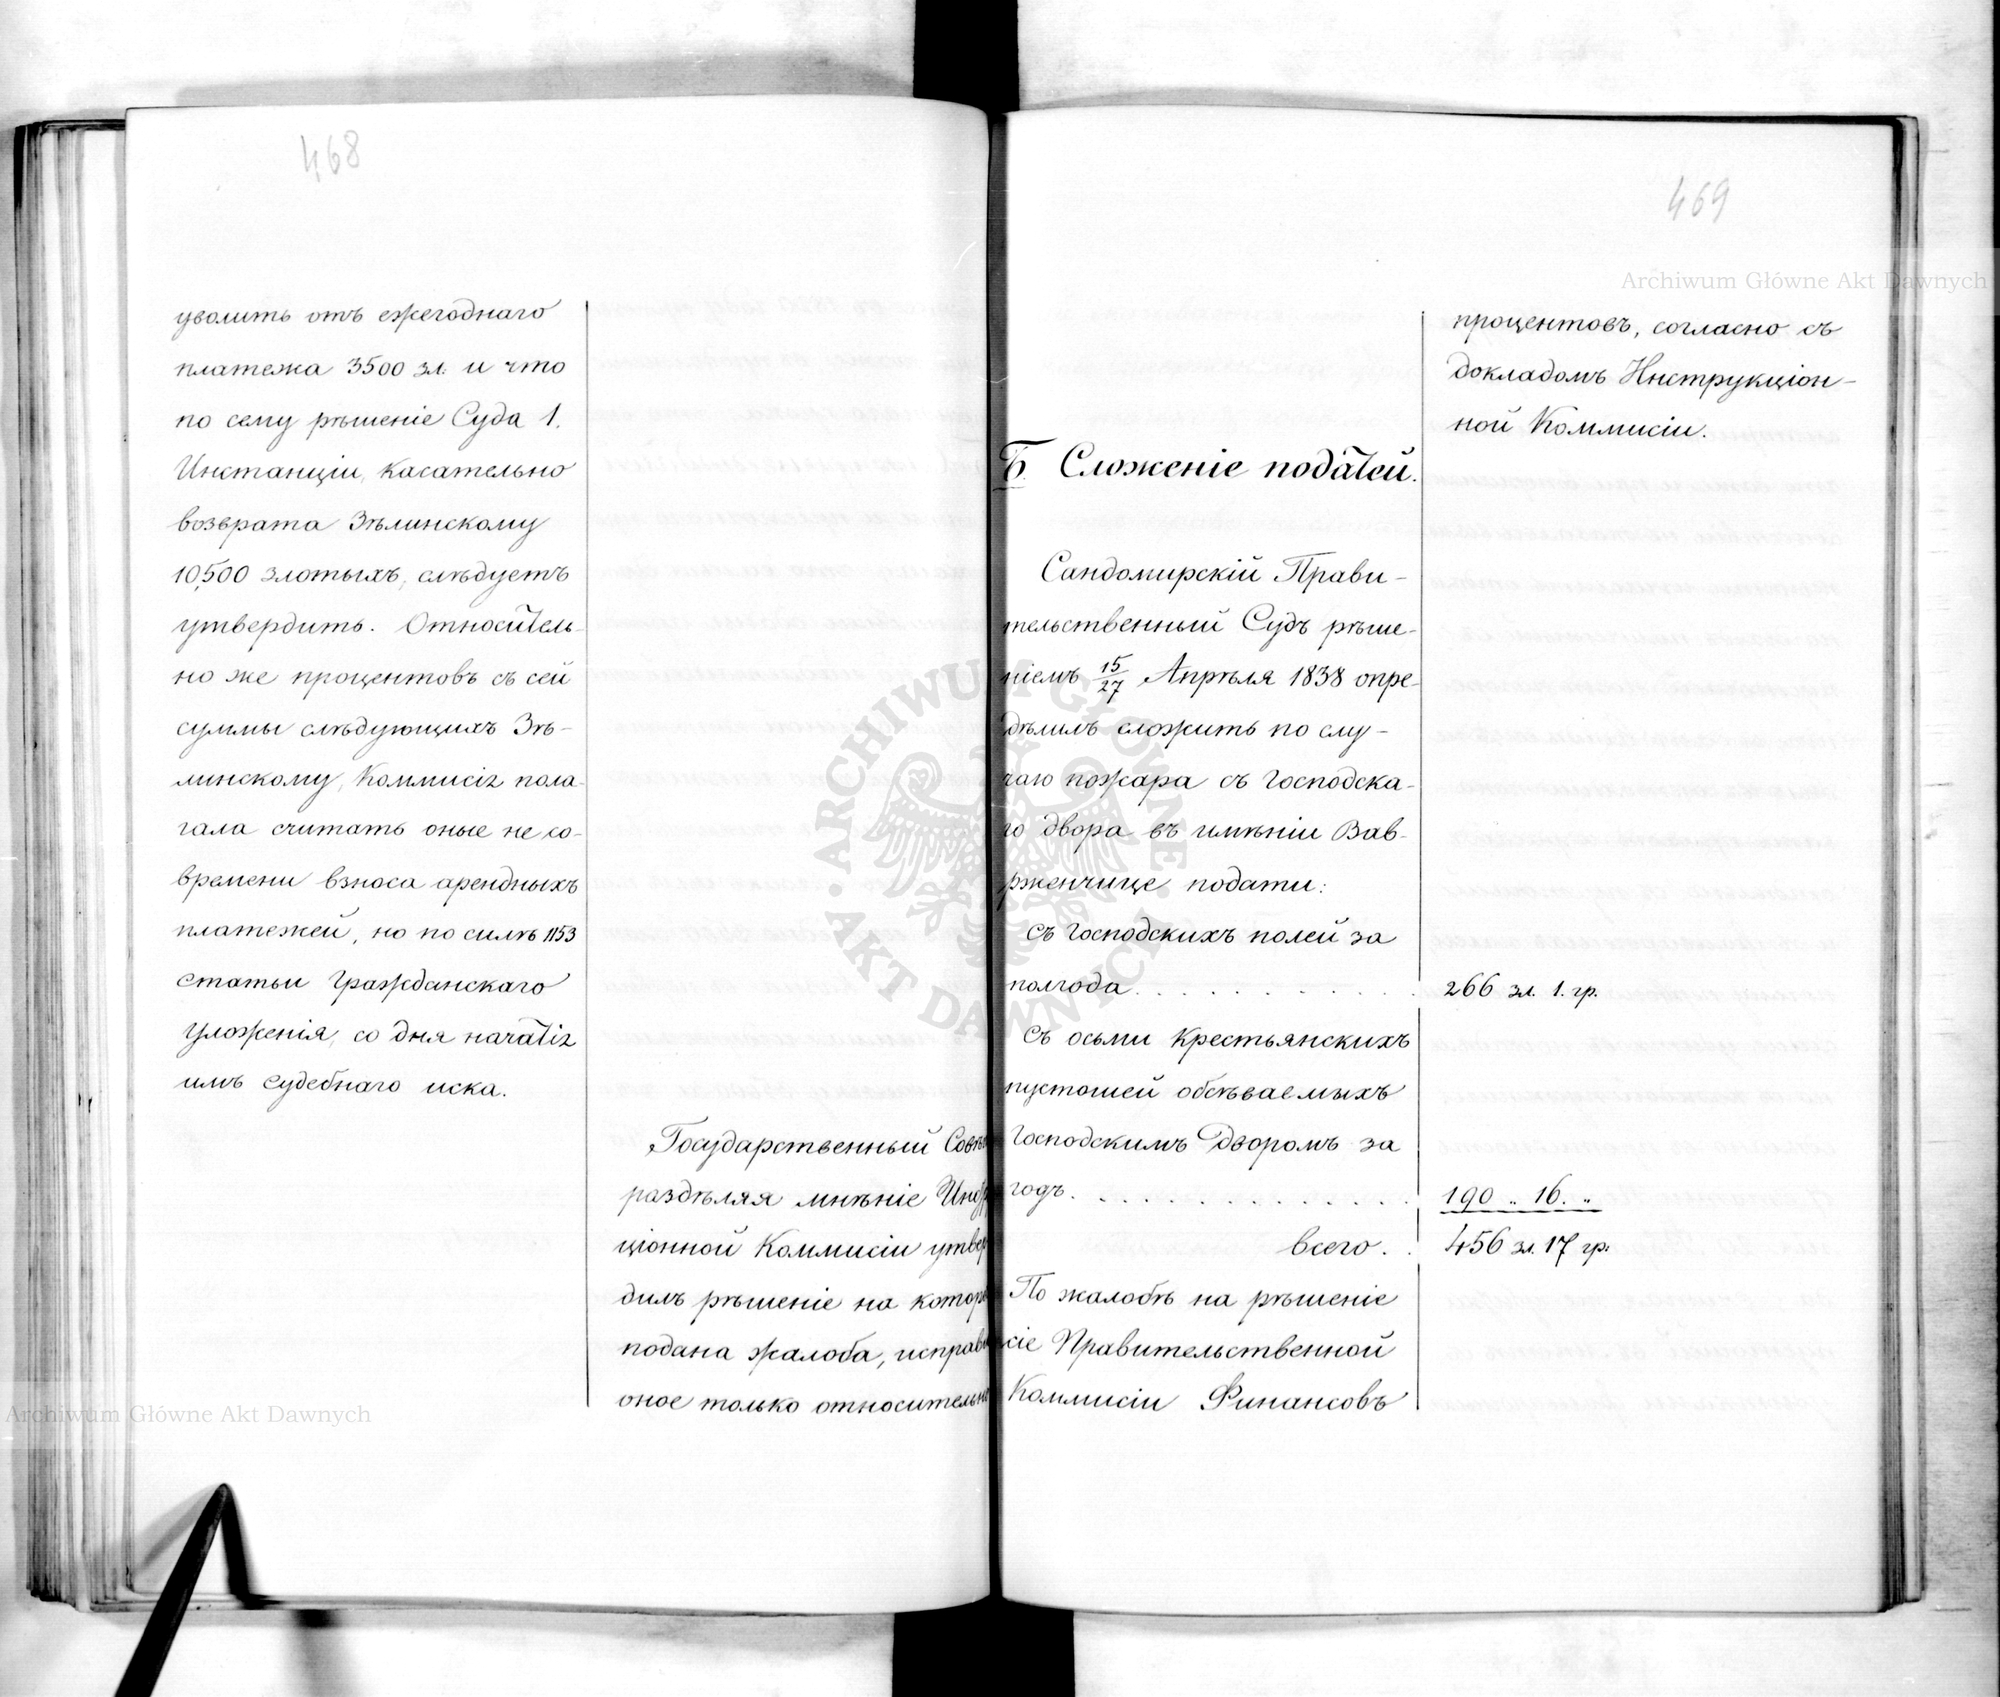 468
уволить отъ ежегоднаго
платежа 3500 зл. и что
по сему рѣшеніе Суда 1.
Инстанціи, касательно
возврата Зѣлинскому
10,500 злотыхъ, слѣдуетъ
утвердить. Относитель-
но же процентовъ съ сей
суммы слѣдующихъ Зѣ-
линскому, Коммисія пола-
гала считать оные не со-
времени взноса арендныхъ
платежей, но по силѣ 1153
статьи Гражданскаго
Уложенія, со дня начатія
имъ судебнаго иска.
Государственный Совѣ
раздѣляя мнѣніе
ціонной Коммисіи утвер
дилъ рѣшеніе на котор
подана жалоба, исправи
оное только относительно
469
процентовъ, согласно съ
докладомъ Инструкціон-
ной Коммисіи.
Б. Сложеніе податей.
Сандомирскій Прави-
тельственный Судъ рѣше-
ніемъ 15/27 Апрѣля 1838 опре-
дѣлилъ сложить по слу-
чаю пожара съ Господска-
го двора въ имѣніи Вав-
рженчице подати:
съ Господскихъ полей за
полгода . . . . . . . . . . . 266 зл. 1. гр.
Съ осьми Крестьянскихъ
пустошей обсѣваемыхъ
Господскимъ Дворомъ за
годъ. . . . . . . . . . . . . . 190 „ 16. „
всего. . 456 зл. 17 гр.
По жалобѣ на рѣшеніе
сіе Правительственной
Коммисіи Финансовъ
Archiwum Główne Akt Dawnych
Archiwum Główne Akt Dawnych
ARCHIWUM GŁÓWNE AKT DAWNYCH